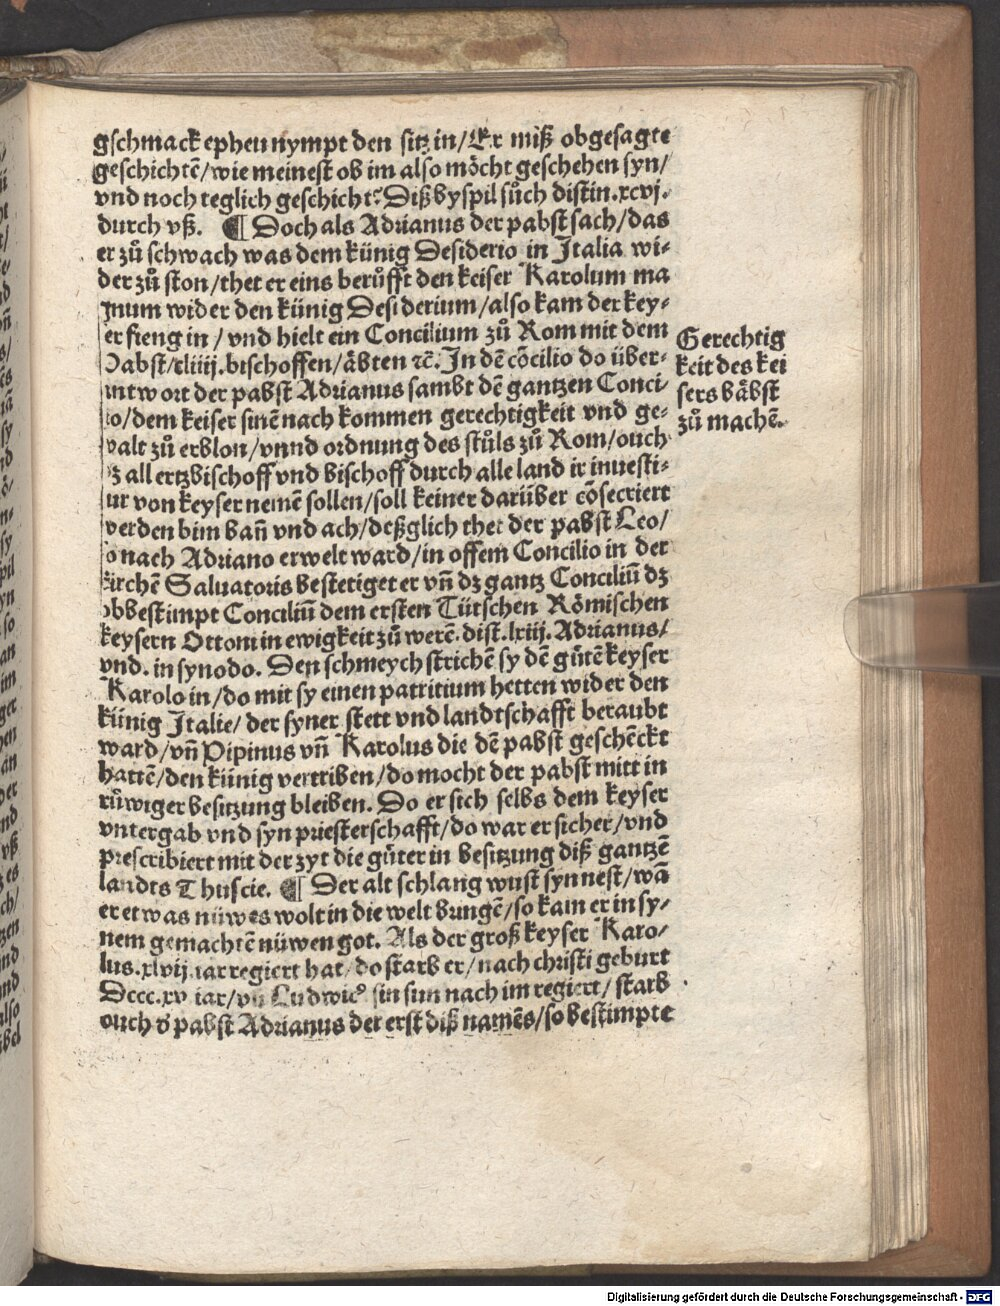 gschmack epheu nympt den sitz in/Er miß obgesagte
geschichtē/wie meinest ob im also möcht geschehen syn/
vnd noch teglich geschicht? Diß byspil sůch distin.xcvj.
durch vß. ¶ Doch als Adrianus der pabst sach/das
er zů schwach was dem künig Desiderio in Italia wi-
der zů ston/thet er eins berůfft den keiser Karolum ma
gnum wider den künig Desiderium/also kam der key-
er fieng in/vnd hielt ein Concilium zů Rom mit dem
Pabst/cliiij.bischoffen/åbten ꝛc̄. In dē cōcilio do über-
antwort der pabst Adrianus sambt dē gantzen Conci-
io/dem keiser sinē nach kommen gerechtigkeit vnd ge-
walt zů erblon/vnnd ordnung des stůls zů Rom/ouch
dz all ertzbischoff vnd bischoff durch alle land ir inuesti-
tur von keyser nemē sollen/soll keiner darüber cōsecriert
werden bim bañ vnd ach/deßglich thet der pabst Leo/
so nach Adriano erwelt ward/in offem Concilio in der
kirchē Saluatoris bestetiget er vñ dz gantz Conciliū dz
obbestimpt Conciliū dem ersten Tütschen Römischen
keysern Ottoni in ewigkeit zů werē.dist.lxiij.Adrianus/
vnd.in synodo. Den schmeych strichē sy dē gůtē keyser
Karolo in/do mit sy einen patritium hetten wider den
künig Italie/der syner stett vnd landtschafft beraubt
ward/vñ Pipinus vñ Karolus die dē pabst geschēckt
hattē/den künig vertriben/do mocht der pabst mitt in
růwiger besitzung bleiben. Do er sich selbs dem keyser
vntergab vnd syn priesterschafft/do war er sicher/vnd
prescribiert mit der zyt die gůter in besitzung diß gantzē
landts Thuscie. ¶ Der alt schlang wust syn nest/wā
er etwas nüwes wolt in die welt bringē/so kam er in sy-
nem gemachtē nüwen got. Als der groß keyser Karo-
lus.xlvij.iar regiert hat/do starb er/nach christi geburt
Dccc.xv iar/vñ Ludwicꝰ sin sun nach im regiert/starb
ouch d' pabst Adrianus der erst diß namēs/so bestimpte
Gerechtig
keit des kei
sers båbst
zů machē.
Digitalisierung gefördert durch die Deutsche Forschungsgemeinschaft - DFG